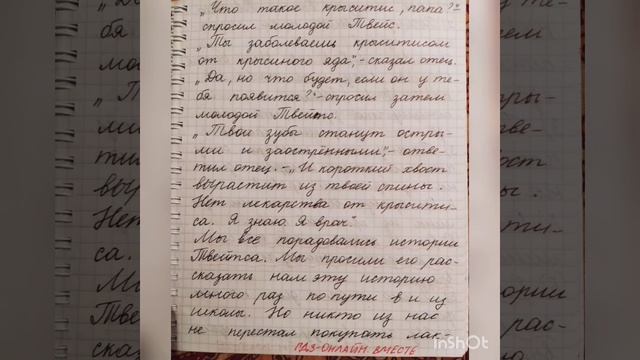 „Что такое крыситис, папа?"
спросил молодой Твейтс.
„Ты заболеваешь крыситисом
от крысиного яда", - сказал отец.
„Да, но что будет, если он у те-
бя появится?" - спросил затем
молодой Твейтс.
„Твои зубы станут остры-
ми и заострёнными", - отве-
тил отец. - „И короткий хвост
вырастит из твоей спины.
Нет лекарства от крысити-
са. Я знаю. Я врач."
Мы все порадовались истории
Твейтса. Мы просили его рас-
сказать нам эту историю
много раз по пути в и из
школы. Но никто из нас
не перестал покупать лак-
ГДЗ-ОНЛАЙН. ВМЕСТЕ
InShOt